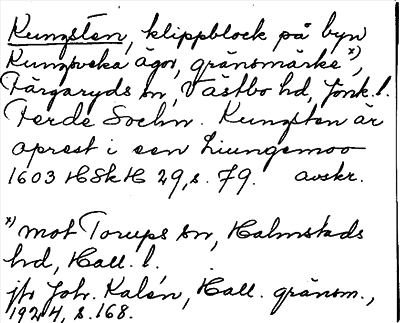 Kungsten, klippblock på byn
Kungsveka ägor, gränsmärke x),
Färgaryds sn, Västbo hd, Jönk. l.
Ferde Sochn. Kungsten är
oprest i een Liungemoo
1603 HSkH 29, s. 79. avskr.
x) mot Torups sn, Halmstads
hd, Hall. l.
jfr Joh. Kalén, Hall. gränsm.,
1924, s. 168.